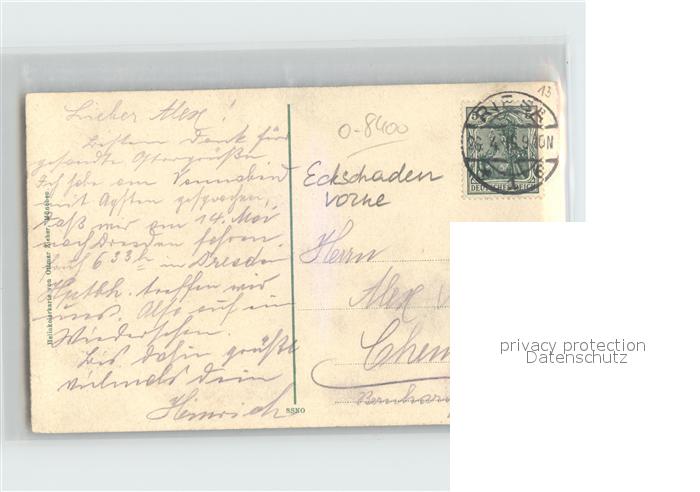 Lieber Alex!
Besten Dank für
gesandte Ostergrüße
Ich habe am Sonnabend
mit gesprochen,
daß wir am 14. Mai
nach Dresden fahren.
6 33 h in Dresden
Hptbh. treffen wir
uns. Also auf ein
Wiedersehen.
Bis dahin grüßt
vielmals Dein
Heinrich
Heliokolorkarte von Ottmar Zieher, München
SSNO
0-8400
Eckschaden
vorne
13
RIESA
DEUTSCHES REICH
Herrn
Alex
Chem
privacy protection
Datenschutz